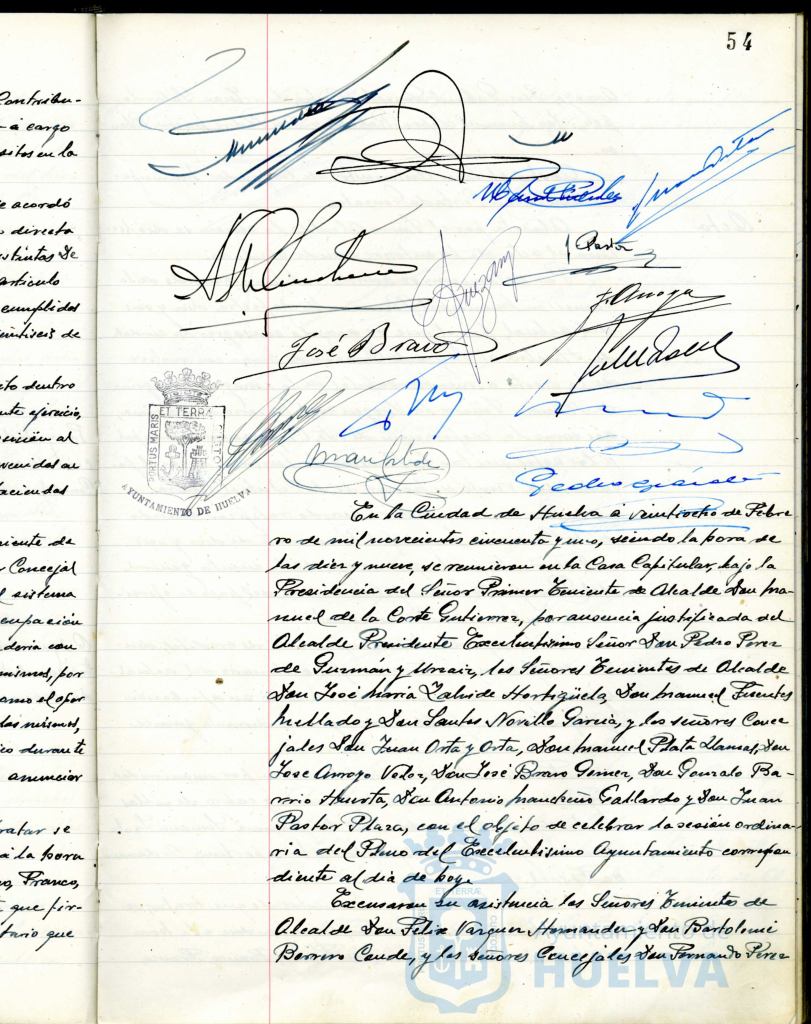 Contribu-
á cargo
sitos en la
e acordó
directa
distintas de
articulo
cumplidos
de
cto dentro
nte ejercicio,
al
venidos au
haciendas
niente de
Concejal
l sistema
cupación
dería con
mismos, por
amo el opor
los mismos,
ico durante
anunciar
tratar se
á la hora
Franco,
que fir-
tario que
54
J Pastor
J. Arroyo
José Bravo
PORTUS MARIS ET TERRAE CUSTODIA
AYUNTAMIENTO DE HUELVA
En la Ciudad de Huelva á veintiocho de Febre-
ro de mil novecientos cincuenta y uno, siendo la hora de
las diez y nueve, se reunieron en la Casa Capitular, bajo la
Presidencia del Señor Primer Teniente de Alcalde Don Ma-
nuel de la Corte Gutierrez, por ausencia justificada del
Alcalde Presidente Excelentísimo Señor Don Pedro Perez
de Guzmán y Urzaiz, los Señores Tenientes de Alcalde
Don José María Zalvide Hortigüela, Don Manuel Fuentes
Mellado y Don Santos Novillo García, y los señores Conce
jales Don Juan Orta y Orta, Don Manuel Plata Llamas, Don
Jose Arroyo Don José Bravo Gomez, Don Gonzalo Ba-
rrio Huerta, Don Antonio Mancheño Gallardo y Don Juan
Pastor Plaza, con el objeto de celebrar la sesión ordina-
ria del Pleno del Excelentísimo Ayuntamiento correspon
diente al dia de hoy.
Excusaron su asistencia los Señores Tenientes de
Alcalde Don Felix Vazquez Hernandez y Don Bartolomé
Borrero Conde, y los señores Concejales Don Fernando Perez
Ayuntamiento de
HUELVA